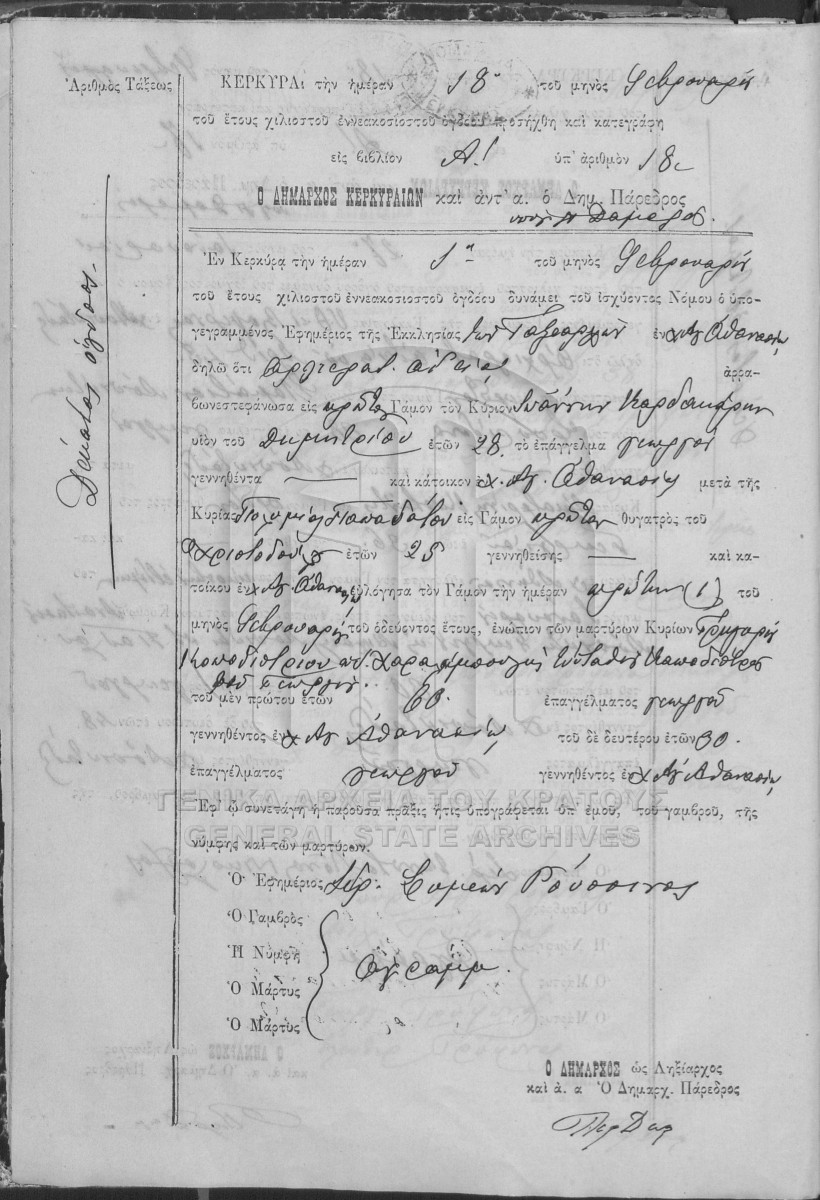 Ἀριθμὸς Τάξεως
Δέκατος ὄγδοος.
ΚΕΡΚΥΡΑι τὴν ἡμέραν 18 τοῦ μηνὸς Φεβρουαρίου
τοῦ ἔτους χιλιοστοῦ ἐννεακοσιοστοῦ ὀγδόου προσήχθη καὶ κατεγράφη
εἰς βιβλίον Α! ὑπ' ἀριθμὸν 18
Ὁ ΔΗΜΑΡΧΟΣ ΚΕΡΚΥΡΑΙΩΝ καὶ ἀντ' α. ὁ Δημ. Πάρεδρος
Ἐν Κερκύρᾳ τὴν ἡμέραν 1η τοῦ μηνὸς Φεβρουαρίου
τοῦ ἔτους χιλιοστοῦ ἐννεακοσιοστοῦ ὀγδόου δυνάμει τοῦ ἰσχύοντος Νόμου ὁ ὑπο-
γεγραμμένος Ἐφημέριος τῆς Ἐκκλησίας τῶν Ταξιαρχῶν ἐν χ. Αγ. Αθανασίῳ
δηλῶ ὅτι Αρχιερατ. αδείᾳ ἀρρα-
βωνεστεφάνωσα εἰς πρῶτον Γάμον τὸν Κύριον Ιωάννην Καρδακάρην
υἱὸν τοῦ Δημητρίου ἐτῶν 28 τὸ ἐπάγγελμα γεωργοῦ
γεννηθέντα — καὶ κάτοικον ἐν χ. Αγ. Αθανασίῳ μετὰ τῆς
Κυρίας Παπαδάτου εἰς Γάμον πρῶτον θυγατρὸς τοῦ
Χριστοδούλου ἐτῶν 25 γεννηθείσης — καὶ κα-
τοίκου ἐν χ Αγ. Αθανασίῳ εὐλόγησα τὸν Γάμον τὴν ἡμέραν πρώτην (1) τοῦ
μηνὸς Φεβρουαρίου τοῦ ὁδεύοντος ἔτους, ἐνώπιον τῶν μαρτύρων Κυρίων Γρηγορίου
Καποδιστρίου Χαραλάμπους Ευσταθίου Καποδίστρια
του Γεωργίου.
τοῦ μὲν πρώτου ἐτῶν 60. ἐπαγγέλματος γεωργοῦ
γεννηθέντος ἐν χ Αγ Αθανασίῳ τοῦ δὲ δευτέρου ἐτῶν 30.
ἐπαγγέλματος γεωργοῦ γεννηθέντος ἐν χ. Αγ. Αθανασίῳ
ΓΕΝΙΚΑ ΑΡΧΕΙΑ ΤΟΥ ΚΡΑΤΟΥΣ
Ἐφ' ᾧ συνετάγη ἡ παροῦσα πρᾶξις ἥτις ὑπογράφεται ὑπ' ἐμοῦ, τοῦ γαμβροῦ, τῆς
GENERAL STATE ARCHIVES
νύμφης καὶ τῶν μαρτύρων.
Ὁ Ἐφημέριος Ιερ. Συμεών Ρούσσινος
Ὁ Γαμβρὸς
Ἡ Νύμφη
Αγράμμ.
Ὁ Μάρτυς
Ὁ Μάρτυς
Ὁ ΔΗΜΑΡΧΟΣ ὡς Ληξίαρχος
καὶ ἀ. α Ὁ Δημαρχ. Πάρεδρος